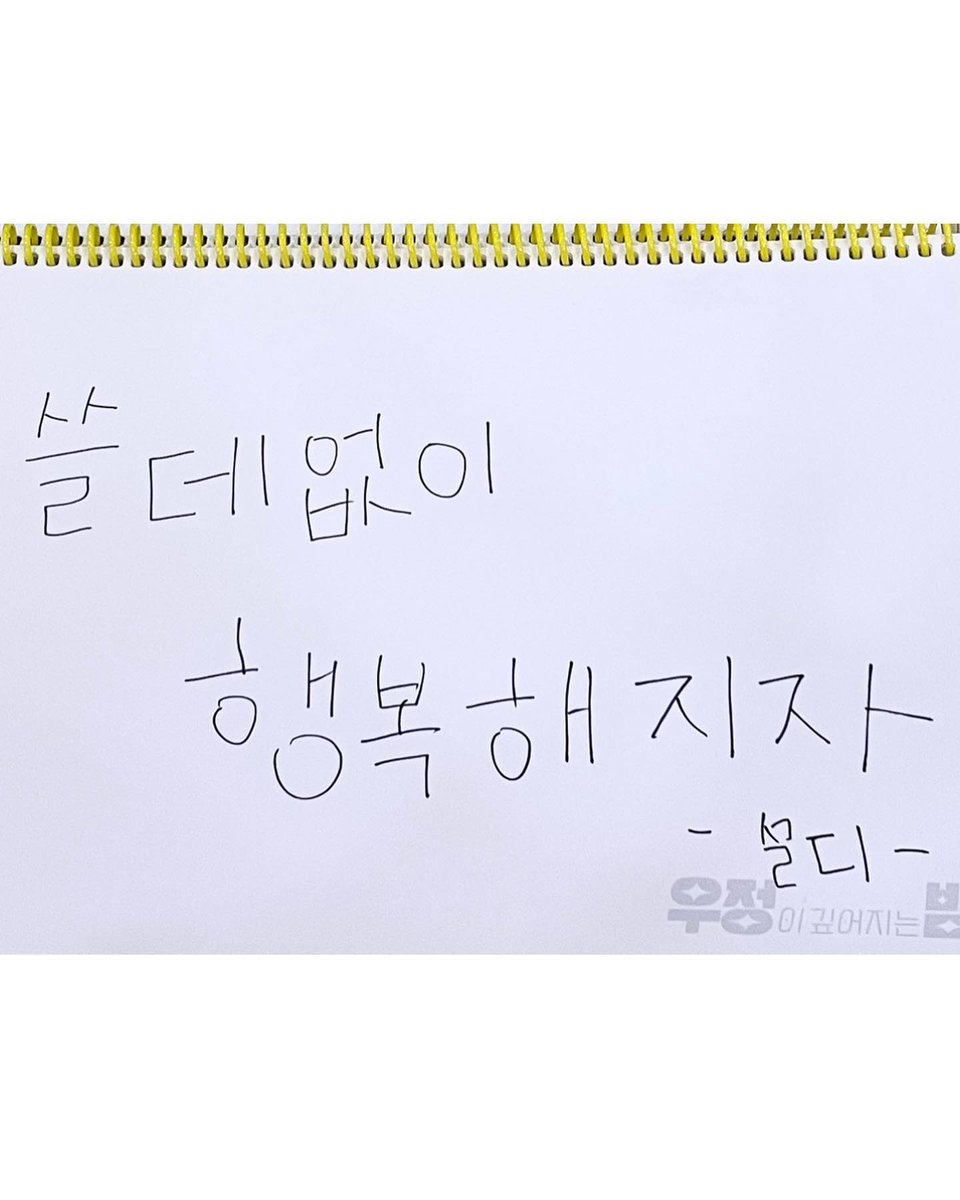 쓸데없이
행복해지자
- 설디 -
우정이 깊어지는 법